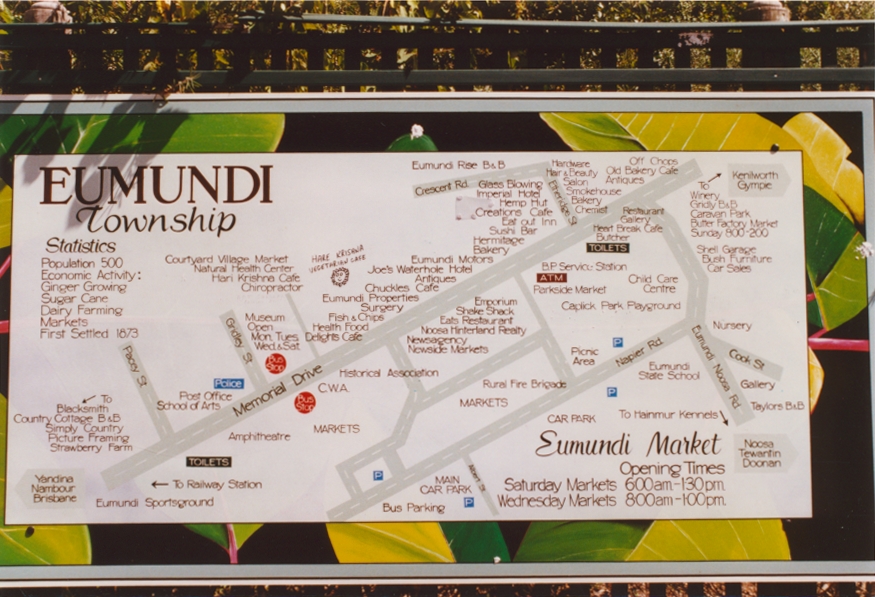 EUMUNDI
Township
Statistics
Population 500
Economic Activity:
Ginger Growing
Sugar Cane
Dairy Farming
Markets
First Settled 1873
Courtyard Village Market
Natural Health Center
Hari Krishna Cafe
Chiropractor
HARE KRISHNA
VEGETARIAN CAFE
Eumundi Rise B&B
Crescent Rd.
Glass Blowing
Imperial Hotel
Hemp Hut
Creations Cafe
Eat out Inn
Sushi Bar
Hermitage
Bakery
Eumundi Motors
Joe's Waterhole Hotel
Antiques
Chuckles Cafe
Eumundi Properties
Surgery
Fish & Chips
Health Food
Delights Cafe
Etheridge St
Hardware
Hair & Beauty
Salon
Smokehouse
Bakery
Chemist
Off Chops
Old Bakery Cafe
Antiques
Restaurant
Gallery
Heart Break Cafe
Butcher
TOILETS
To
Winery
Gridly B&B
Caravan Park
Butter Factory Market
Sunday 8:00-2:00
Kenilworth
Gympie
Shell Garage
Bush Furniture
Car Sales
B.P. Service Station
ATM
Parkside Market
Child Care
Centre
Caplick Park Playground
Emporium
Shake Shack
Eats Restaurant
Noosa Hinterland Realty
Newsagency
Newside Markets
Museum
Open
Mon. Tues.
Wed. & Sat.
Bus
Stop
Pacey St
Gridley St
Memorial Drive
Police
Post Office
School of Arts
Bus
Stop
C.W.A.
Historical Association
MARKETS
Amphitheatre
TOILETS
To
Blacksmith
Country Cottage B&B
Simply Country
Picture Framing
Strawberry Farm
Yandina
Nambour
Brisbane
To Railway Station
Eumundi Sportsground
P
Picnic
Area
Napier Rd.
Nursery
Eumundi
State School
Eumundi Noosa Rd.
Cook St
Gallery
Taylors B&B
Rural Fire Brigade
MARKETS
P
CAR PARK
To Hainmur Kennels
Noosa
Tewantin
Doonan
P
MAIN
CAR PARK
P
Bus Parking
Albert St
Eumundi Market
Opening Times
Saturday Markets 6:00am-1:30pm.
Wednesday Markets 8:00am-1:00pm.